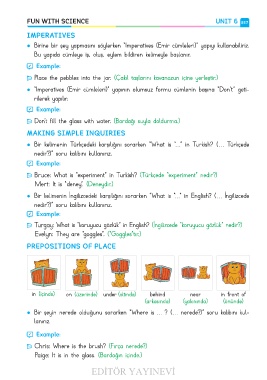 FUN WITH SCIENCE
UNIT 6
IMPERATIVES
Birine bir şey yapmasını söylerken "Imperatives (Emir cümleleri)" yapıyı kullanabiliriz.
Bu yapıda cümleye iş, oluş, eylem bildiren kelimeyle başlanır.
Example:
Place the pebbles into the jar. (Çakıl taşlarını kavanozun içine yerleştir.)
"Imperatives (Emir cümleleri)" yapının olumsuz formu cümlenin başına "Don't" geti-
rilerek yapılır.
Example:
Don't fill the glass with water. (Bardağı suyla doldurma.)
MAKING SIMPLE INQUIRIES
Bir kelimenin Türkçedeki karşılığını sorarken "What is "..." in Turkish? (... Türkçede
nedir?)" soru kalıbını kullanırız.
Example:
Bruce: What is "experiment" in Turkish? (Türkçede "experiment" nedir?)
Mert: It is "deney". (Deneydir.)
Bir kelimenin İngilizcedeki karşılığını sorarken "What is "..." in English? (... İngilizcede
nedir?)" soru kalıbını kullanırız.
Example:
Turgay: What is "koruyucu gözlük" in English? (İngilizcede "koruyucu gözlük" nedir?)
Evelyn: They are "goggles". ("Goggles"tır.)
PREPOSITIONS OF PLACE
in (içinde)
on (üzerinde)
under (altında)
behind (arkasında)
near (yakınında)
in front of (önünde)
Bir şeyin nerede olduğunu sorarken "Where is ... ? (... nerede?)" soru kalıbını kul-
lanırız.
Example:
Chris: Where is the brush? (Fırça nerede?)
Paige: It is in the glass. (Bardağın içinde.)
EDİTÖR YAYINEVİ